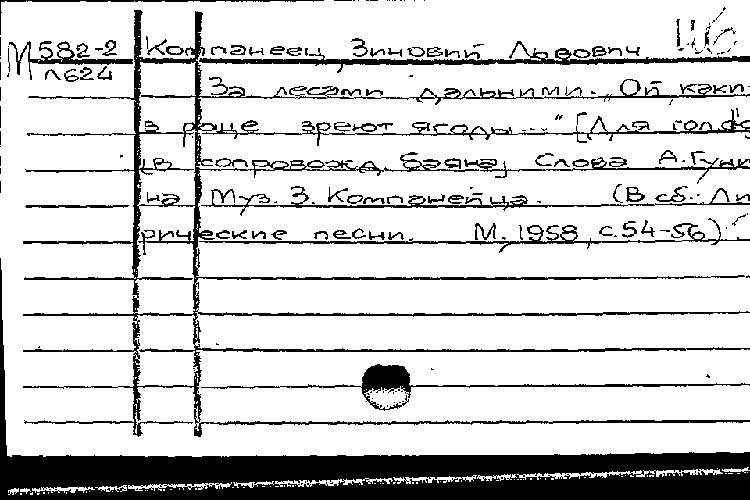 М 582-2 Компанеец, Зиновий Львович.
Л624
За лесами дальними. „Ой, каки
в роще зреют ягоды..." [Для голоса
[в сопровожд. баяна] Слова А. Гунк
на Муз. З. Компанейца. (В сб.: Ли
рические песни. М., 1958, с. 54-56)